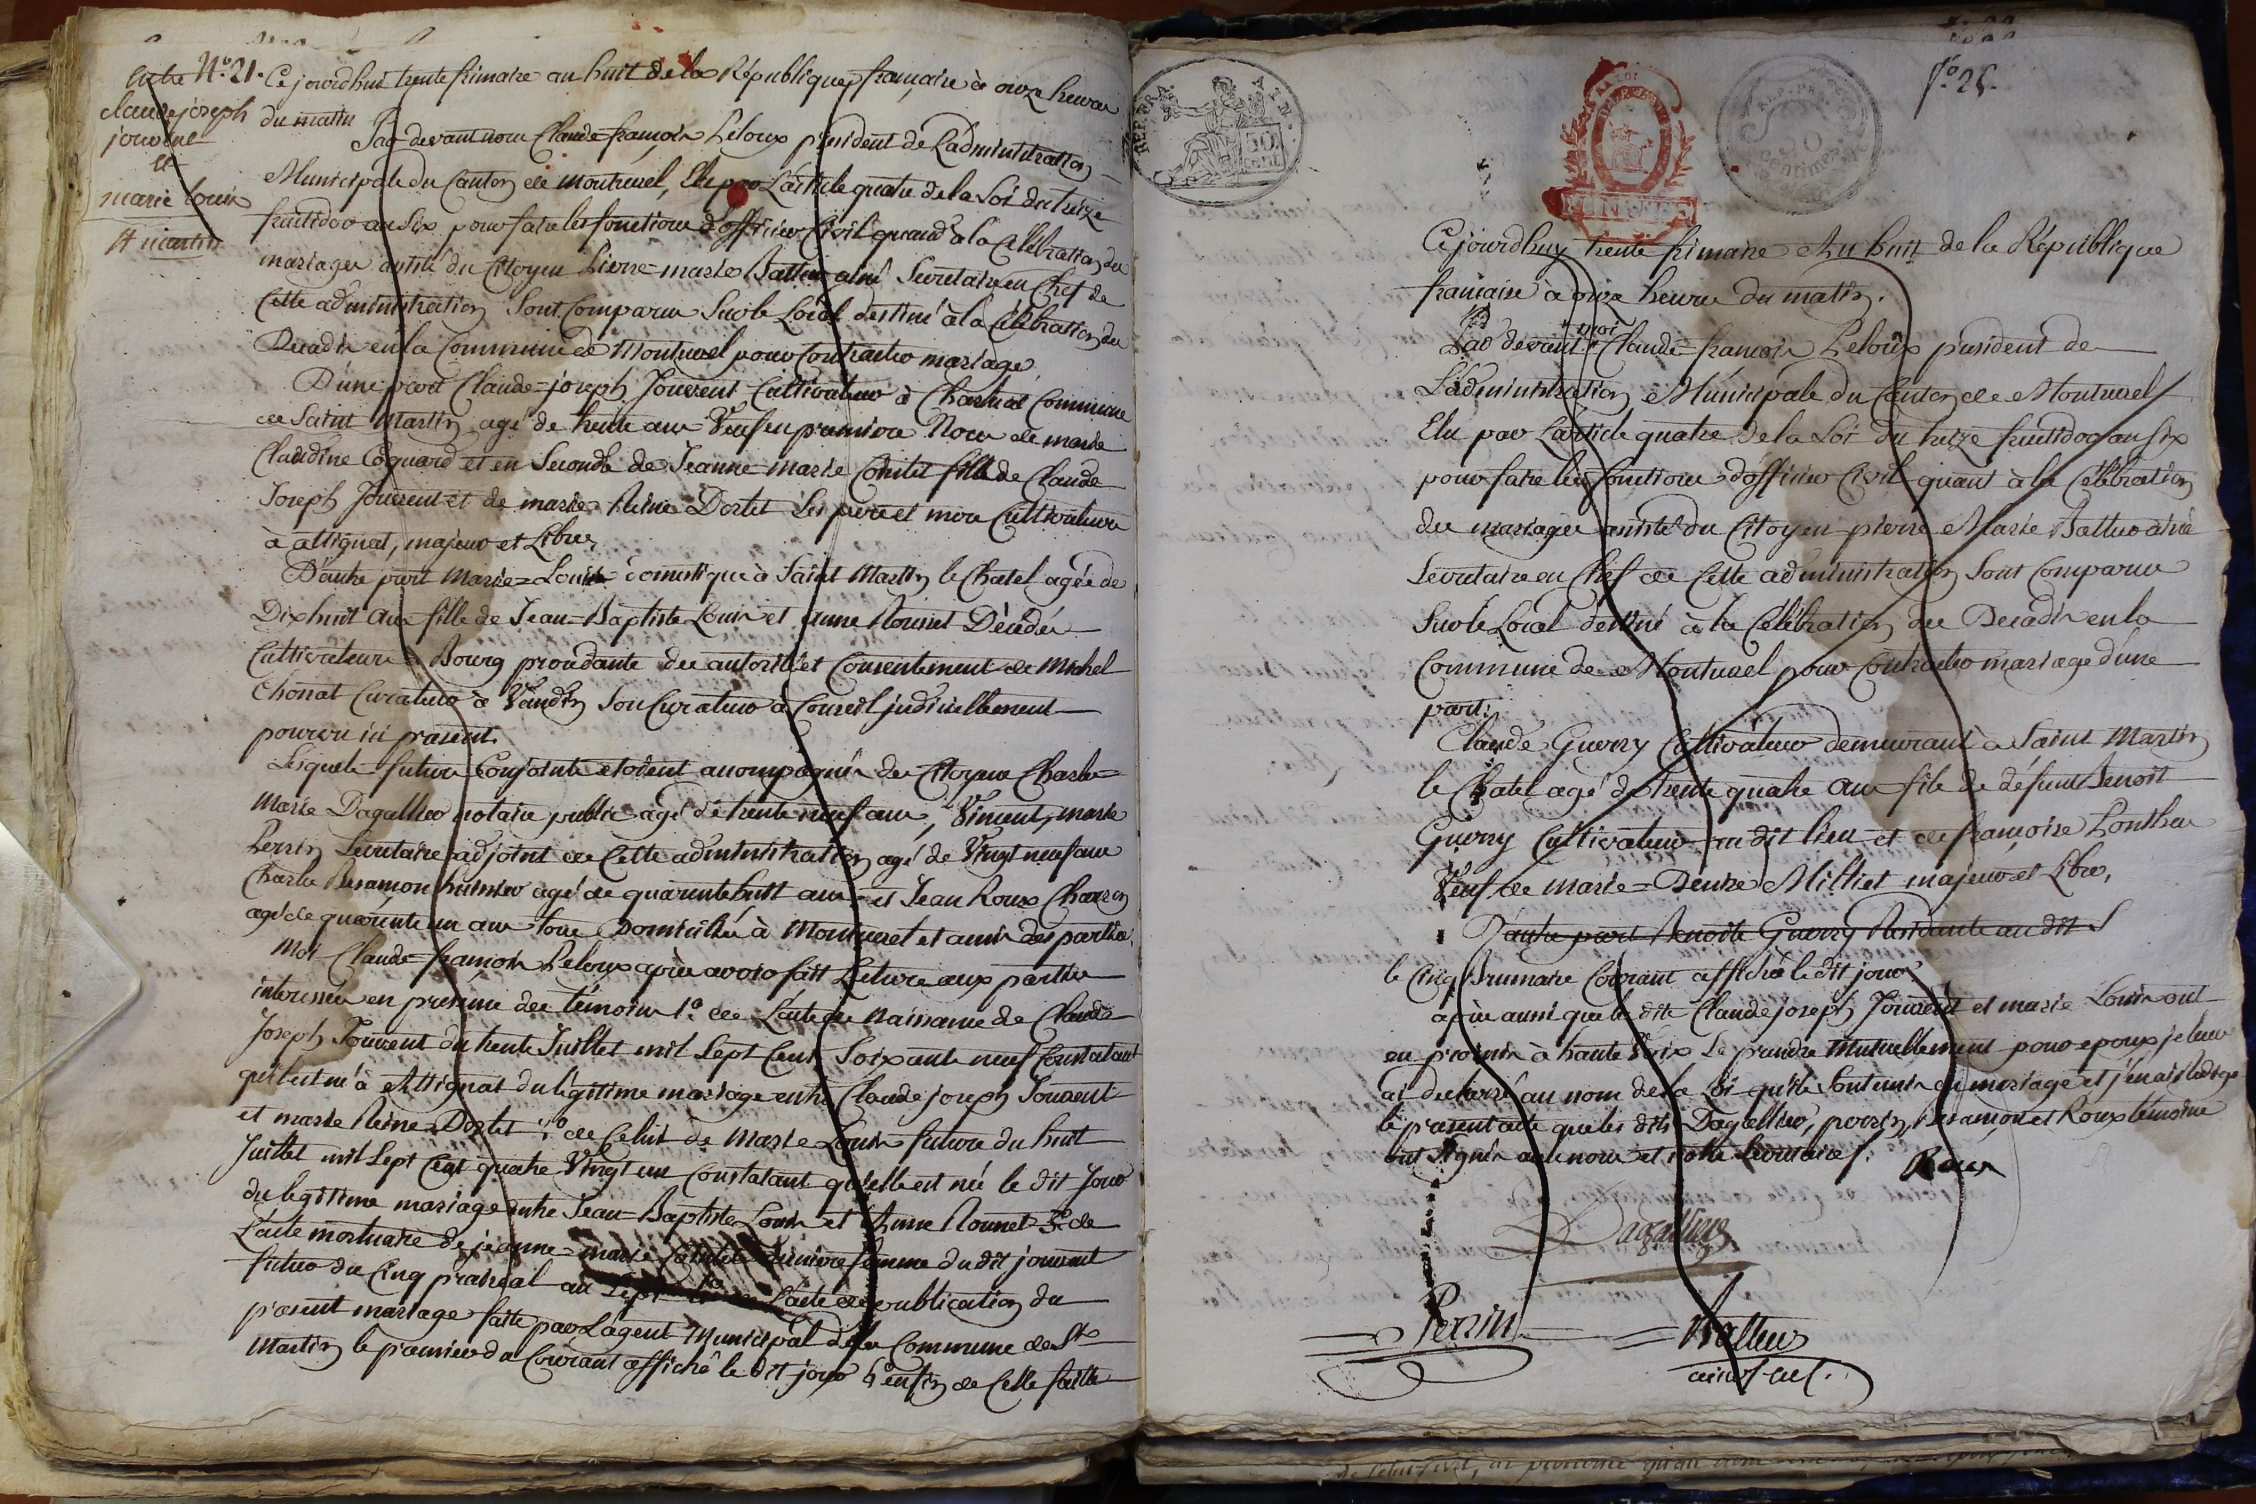 Entre N.º 21.
claude joseph
jouvent
et
marie Louis
St martin
Cejourdhui trente frimaire an huit de la République française à onze heures
du matin
Par devant nous Claude=françois Peloux président de L'administration
Municipale du Canton de Montrevel, Elu par L'article quatre de la Loi du treize
fructidor an Six pour faire les fonctions d'officier Civil quand à la Célébration des
mariages assisté du Citoyen Pierre=marie Battur ainé Secretaire en Chef de
Cette administration Sont Comparus Sur le Local destiné à la Célébration des
Decadis en la Commune de Montrevel pour Contracter mariage
D'une part Claude=joseph Jouvent Cultivateur à Commune
de Saint Martin agé de trente ans Veuf en premiere Noces de marie
Claudine Coquard et en Seconde de Jeanne=marie fils de Claude
Joseph Jouvent et de marie Reine Dortet Ses pere et mere Cultivateurs
à attignat, majeur et Libre,
D'autre part Marie=Louis domestique à Saint Martin le Chatel agée de
Dix huit ans fille de Jean=Baptiste Louis et Anne Décédés
Cultivateurs à Bourg procédante des autorité et Consentement de Michel
Chonat Curateur à Vandin Son Curateur à Conseil judiciellement
pourvu ici présent.
Lesquels futurs Conjoints etoient accompagnés des Citoyens Charles=
Marie Dagallier notaire public agé de trente neuf ans, Vincent, marie
Perrin Secretaire adjoint de Cette administration agé de Vingt neuf ans
Charles Besamon huissier agé de quarente huit ans et Jean Roux Charron
agé de quarente un ans tous Domiciliés à Montrevel et amis des parties,
Moi Claude=françois Peloux après avoir fait Lecture aux parties
interessées en presence des témoins 1.º de L'acte de Naissance de Claude
Joseph Jouvent du trente Juillet mil Sept Cent Soixante neuf Constatant
qu'il est né à Attignat du légitime mariage entre Claude joseph Jouvent
et marie Reine Dortet 2.º de Celui de Marie Louis future du huit
Juillet mil Sept Cent quatre Vingt un Constatant qu'elle est née le dit Jour
du legitime mariage entre Jean=Baptiste Louis et Anne 3.º de
L'acte mortuaire de jeanne=marie derniere femme du dit jouvent
futur du Cinq prairial an Sept L'acte de publication du
présent mariage faite par L'agent Municipal de la Commune de St
Martin le premier du Courant affiché le dit jour enfin de Celle faite
f.º 25.
REP. FRA.
50
CENT.
Cejourdhuy trente frimaire An huit de la République
française à onze heures du matin.
Par devant moi Claude=françois Peloux president de
L'administration Municipale du Canton de Montrevel
Elu par L'article quatre de la Loi du treize fructidor an six
pour faire les fonctions d'officier Civil quant à la Célébration
des mariages assisté du Citoyen pierre Marie Battur ainé
Secretaire en Chef de Cette administration Sont Comparus
Sur le Local destiné à la Célébration des Decadis en la
Commune de Montrevel pour Contracter mariage d'une
part;
Claude Guerry Cultivateur demeurant à Saint Martin
le Chatel agé de trente quatre ans fils de défunt Benoit
Guerry Cultivateur au dit lieu et de françoise Ponthus
Veuf de Marie=Denise Milliet majeur et Libre,
D'autre part Benoite Guerry Residante au dit S
le Cinq Brumaire Courant affiché le dit jour
après aussi que les dits Claude joseph Jouvent et marie Louis ont
eu promis à haute Voix Se prendre Mutuellement pour epoux je leur
ai declarré au nom de la Loi qu'ils Sont unis en mariage et j'en ai redigé
le présent acte que les dits Dagallier, perrin, Besamon et Roux témoins
ont Signés avec nous et notre Secretaire.
Roux
Dagallier
Perrin
Battur
ainé secr.